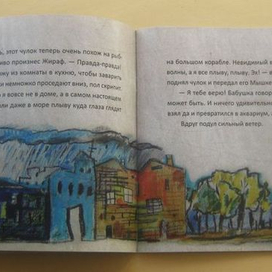 , этот чулок теперь очень похож на рыб-
иво произнес Жираф. — Правда-правда!
му из комнаты в кухню, чтобы заварить
и немножко проседают вниз, пол скрипит:
я вовсе не в доме, а в самом настоящем
ли даже в море плыву куда глаза глядят
на большом корабле. Невидимый
волны, а я все плыву, плыву. Эх! —
поднял чулок и передал его Мышке
— Я тебе верю! Бабушка говор
может быть. И ничего удивительн
взял да и превратился в аквариум,
Вдруг подул сильный ветер.